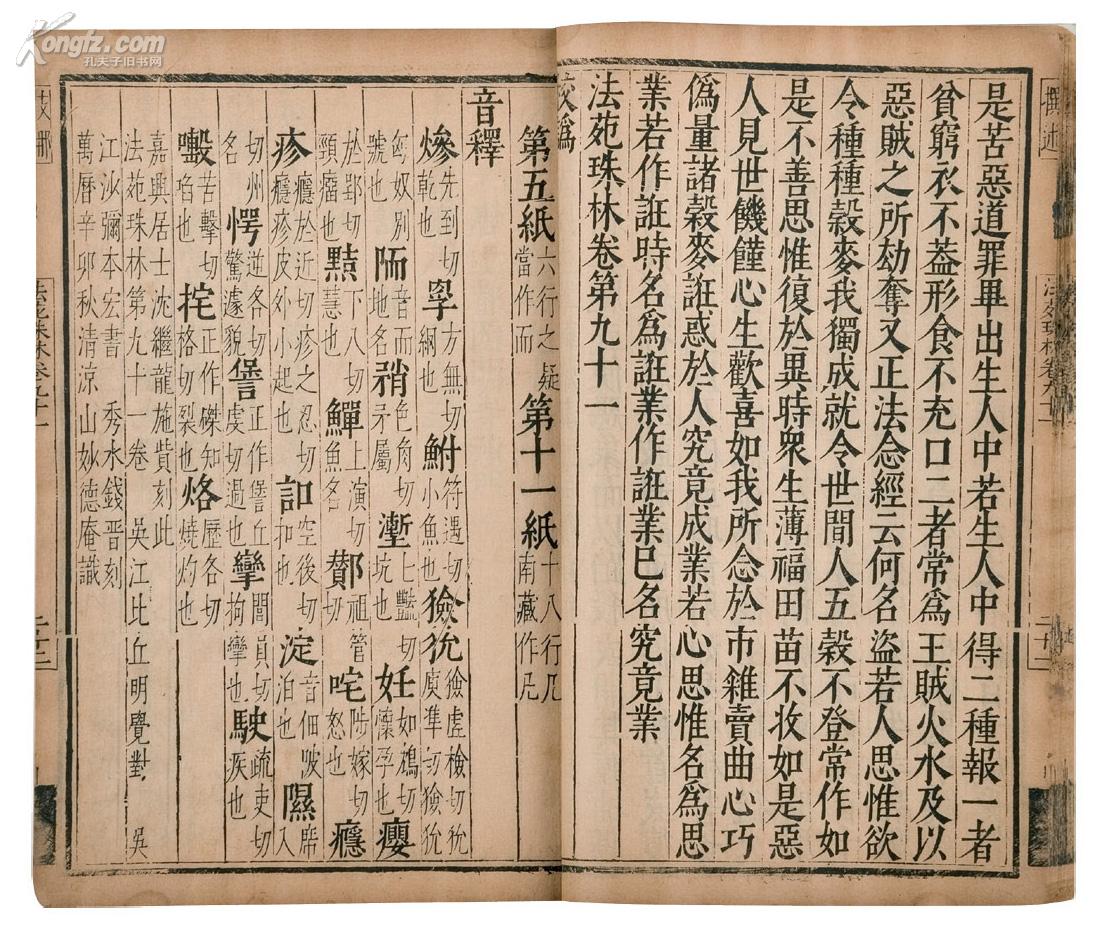 是苦惡道罪畢出生人中若生人中得二種報一者
貧窮衣不蓋形食不充口二者常為王賊火水及以
惡賊之所劫奪又正法念經云何名盜若人思惟欲
令種種穀麥我獨成就令世間人五穀不登常作如
是不善思惟復於異時衆生薄福田苗不收如是惡
人見世饑饉心生歡喜如我所念於市雜賣曲心巧
偽量諸穀麥誑惑於人究竟成業若心思惟名為思
業若作誑時名為誑業作誑業已名究竟業
法苑珠林卷第九十一
音釋
第五紙六行之疑當作而 第十一紙十八行凡南藏作凡
先到切乾也 孚方無切綱也 鮒符遇切小魚也 獫狁獫虛檢切狁庾準切獫狁
匈奴別號也 陑音而地名 矟色角切矛屬 塹七豔切坑也 妊如鴆切懷孕也 癭
於郢切頸瘤也 黠下八切慧也 鱓上演切魚名 酇祖管切 咤陟嫁切怒也 癮
疹癮於近切疹之忍切癮疹皮外小起也 訆空後切扣也 淀音佃陂泊也 隰席入
切州名 愕逆各切驚遽貌 諐正作愆丘虔切過也 攣閭員切拘攣也 駛疏吏切疾也
苦擊切 㧄正作磔知格切裂也 烙歷各切燒灼也
嘉興居士沈繼龍施貲刻此
法苑珠林第九十一卷 吳江比丘明覺對 吳
江沙彌本宏書 秀水錢晋刻
萬曆辛卯秋清涼山妙德庵識
撰述
Kongfz.com
孔夫子旧书网